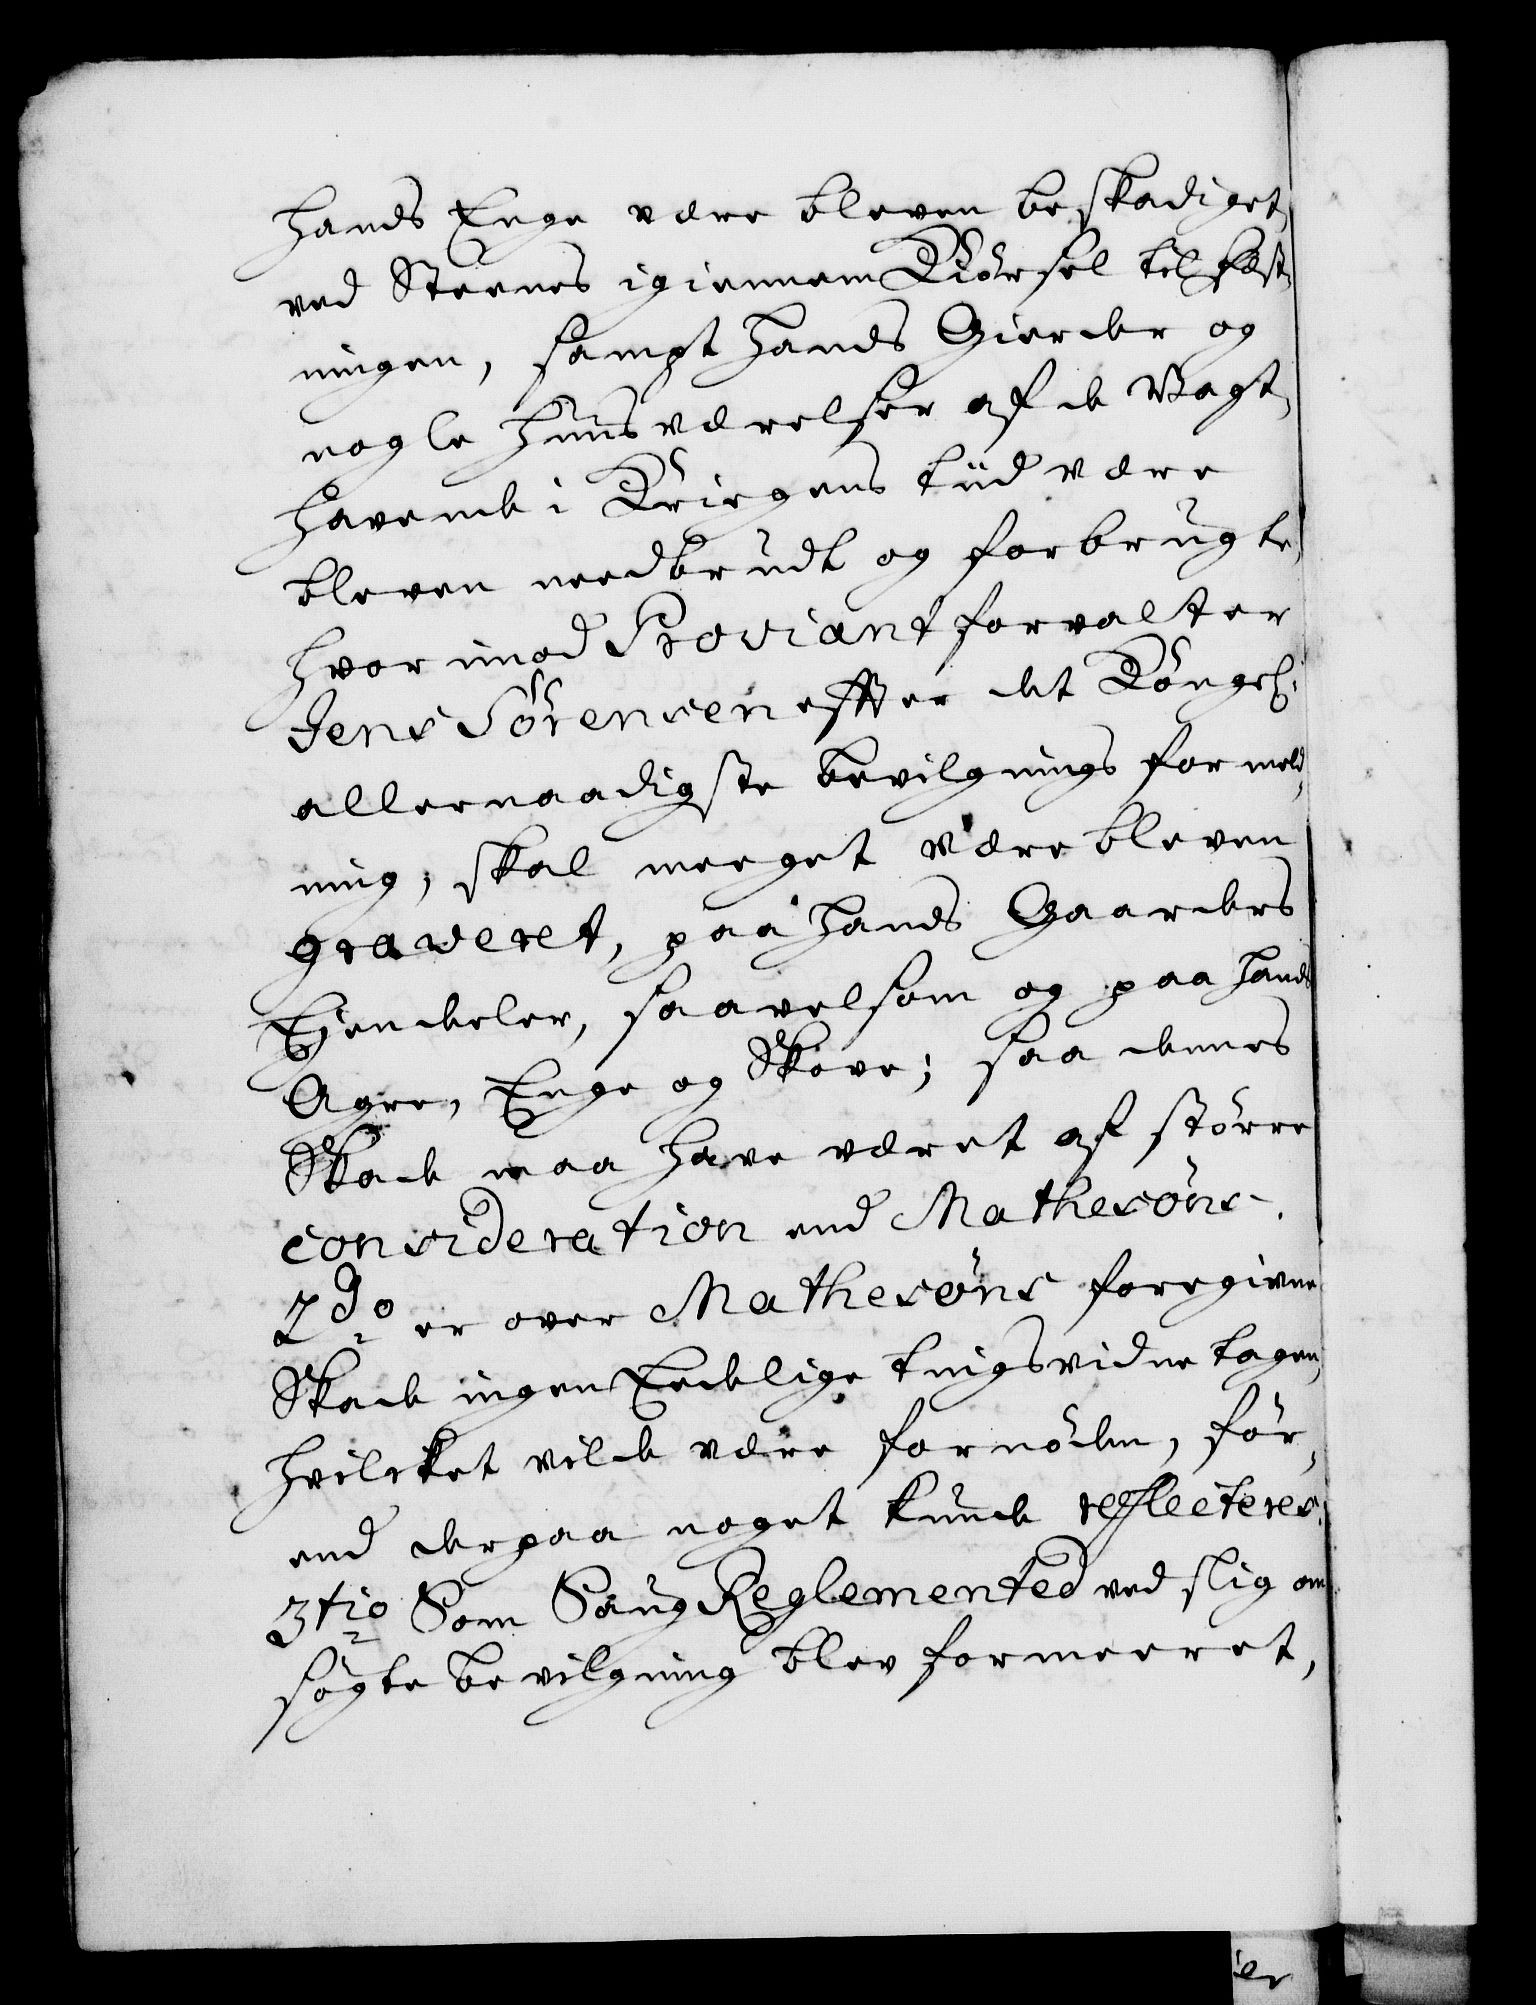 hands Enge være bleven beskadiget
ved Steenes igiennem Kiörsel til Fæst-
ningen, sampt hands Gierder og
nogle Huusværelser af de Vagt-
havende i Kriegens tiid være
bleven needbrudt og forbrugte,
hvorimod Proviantforvalter
Jens Sörensen effter det Kongel:
allernaadigste bevilgnings formeld-
ning, skal meeget være bleven
graveret, paa hands Gaarders
Ejendeler, saavelsom og paa hands
Agre, Enge og Skove; saa dennes
Skade maa have været af större
consideration end Mathesöns.
2do er over Mathesöns foregivne
Skade ingen Eedelige tingsvidne tagen,
hvilcket vilde være fornöden, för-
end derpaa noget kunde reflecteres.
3tio Som Saug Reglemented ved slig an-
sögte bevilgning blev formeeret,
ier